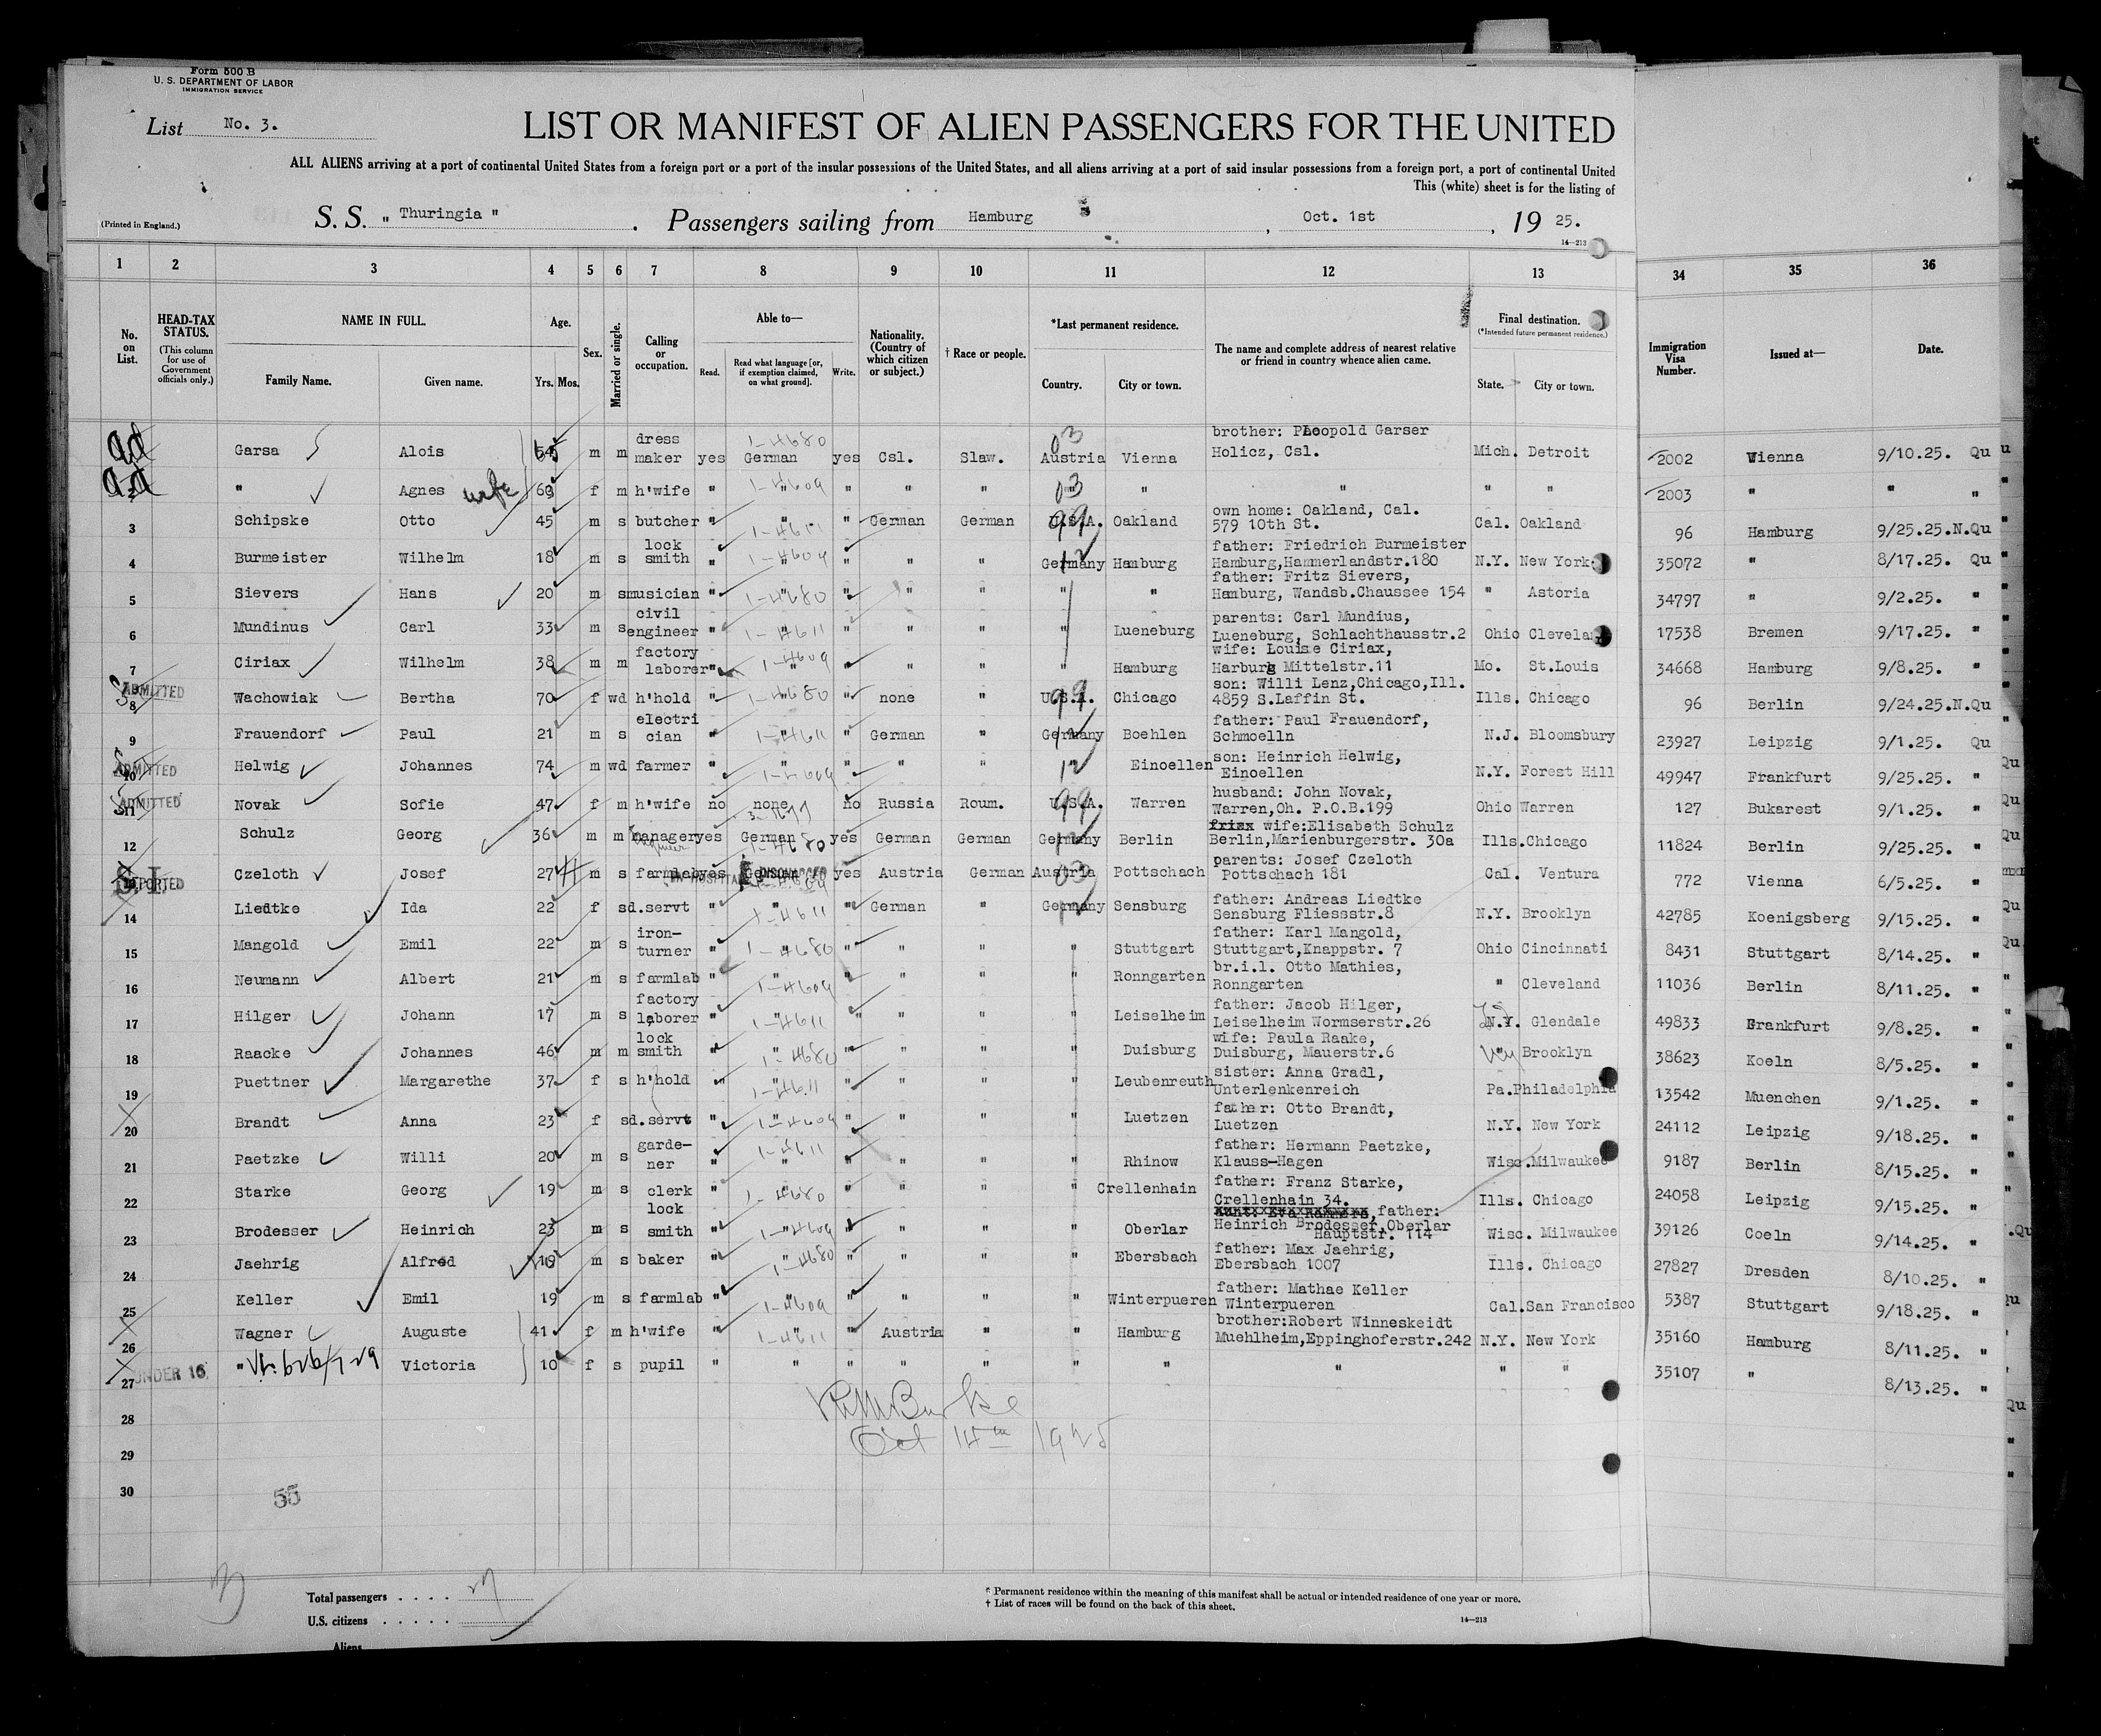 Form 500 B
U. S. DEPARTMENT OF LABOR
IMMIGRATION SERVICE
List No. 3.
LIST OR MANIFEST OF ALIEN PASSENGERS FOR THE UNITED
ALL ALIENS arriving at a port of continental United States from a foreign port or a port of the insular possessions of the United States, and all aliens arriving at a port of said insular possessions from a foreign port, a port of continental United
This (white) sheet is for the listing of
(Printed in England.)
S. S. „ Thuringia " . Passengers sailing from Hamburg , Oct. 1st , 19 25.
14—213
1 2 3 4 5 6 7 8 9 10 11 12 13 34 35 36
No. on List.
HEAD-TAX STATUS.
(This column for use of Government officials only.)
NAME IN FULL.
Family Name. Given name.
Age.
Yrs. Mos.
Sex.
Married or single.
Calling or occupation.
Able to—
Read. Read what language [or, if exemption claimed, on what ground]. Write.
Nationality. (Country of which citizen or subject.)
† Race or people.
*Last permanent residence.
Country. City or town.
The name and complete address of nearest relative or friend in country whence alien came.
Final destination.
(*Intended future permanent residence.)
State. City or town.
Immigration Visa Number.
Issued at—
Date.
Garsa Alois m m dress maker yes German 1-4680 yes Csl. Slaw. Austria 03 Vienna brother: Leopold Garser Holicz, Csl. Mich. Detroit 2002 Vienna 9/10.25. Qu
" Agnes wife 63 f m h'wife " " 1-4609 " " " " 03 " " " " 2003 " " "
3 Schipske Otto 45 m s butcher " " " German German U.S.A. 99 Oakland own home: Oakland, Cal. 579 10th St. Cal. Oakland 96 Hamburg 9/25.25.N.Qu
4 Burmeister Wilhelm 18 m s lock smith " " 1-4609 " " " Germany 12 Hamburg father: Friedrich Burmeister Hamburg,Hammerlandstr.180 N.Y. New York 35072 " 8/17.25. Qu
5 Sievers Hans 20 m s musician " " 1-4680 " " " " " father: Fritz Sievers, Hamburg, Wandsb.Chaussee 154 " Astoria 34797 " 9/2.25. "
6 Mundinus Carl 33 m s civil engineer " " 1-4611 " " " " Lueneburg parents: Carl Mundius, Lueneburg, Schlachthausstr.2 Ohio Cleveland 17538 Bremen 9/17.25. "
7 Ciriax Wilhelm 38 m m factory laborer " " 1-4609 " " " " Hamburg wife: Louise Ciriax, Harburg Mittelstr.11 Mo. St.Louis 34668 Hamburg 9/8.25. "
ADMITTED
8 Wachowiak Bertha 70 f wd h'hold " " 1-4680 " none " U.S.A. 99 Chicago son: Willi Lenz,Chicago,Ill. 4859 S.Laffin St. Ills. Chicago 96 Berlin 9/24.25.N.Qu
9 Frauendorf Paul 21 m s electri cian " " 1-4611 " German " Germany 12 Boehlen father: Paul Frauendorf, Schmoelln N.J. Bloomsbury 23927 Leipzig 9/1.25. Qu
ADMITTED
10 Helwig Johannes 74 m wd farmer " " 1-4609 " " " 12 Einoellen son: Heinrich Helwig, Einoellen N.Y. Forest Hill 49947 Frankfurt 9/25.25. "
ADMITTED
11 Novak Sofie 47 f m h'wife no none no Russia Roum. U.S.A. 99 Warren husband: John Novak, Warren,Oh. P.O.B.199 Ohio Warren 127 Bukarest 9/1.25. "
12 Schulz Georg 36 m m manager engineer yes German 1-4680 yes German German Germany 12 Berlin wife:Elisabeth Schulz Berlin,Marienburgerstr. 30a Ills.Chicago 11824 Berlin 9/25.25. "
S.I. DEPORTED
Czeloth Josef 27 m s farmlab yes IN HOSPITAL German DISCHARGED yes Austria German Austria 03 Pottschach parents: Josef Czeloth Pottschach 181 Cal. Ventura 772 Vienna 6/5.25. "
14 Liedtke Ida 22 f s d.servt " " 1-4611 " German " Germany 12 Sensburg father: Andreas Liedtke Sensburg Fliessstr.8 N.Y. Brooklyn 42785 Koenigsberg 9/15.25. "
15 Mangold Emil 22 m s iron- turner " " 1-4680 " " " " Stuttgart father: Karl Mangold, Stuttgart,Knappstr. 7 Ohio Cincinnati 8431 Stuttgart 8/14.25. "
16 Neumann Albert 21 m s farmlab " " 1-4609 " " " " Ronngarten br.i.l. Otto Mathies, Ronngarten " Cleveland 11036 Berlin 8/11.25. "
17 Hilger Johann 17 m s factory laborer " " 1-4611 " " " " Leiselheim father: Jacob Hilger, Leiselheim Wormserstr.26 N.Y. Glendale 49833 Frankfurt 9/8.25. "
18 Raacke Johannes 46 m m lock smith " " 1-4680 " " " " Duisburg wife: Paula Raake, Duisburg, Mauerstr.6 " Brooklyn 38623 Koeln 8/5.25. "
19 Puettner Margarethe 37 f s h'hold " " 1-4611 " " " " Leubenreuth sister: Anna Gradl, Unterlenkenreich Pa.Philadelphia 13542 Muenchen 9/1.25. "
20 Brandt Anna 23 f s d.servt " " 1-4609 " " " " Luetzen father: Otto Brandt, Luetzen N.Y. New York 24112 Leipzig 9/18.25. "
21 Paetzke Willi 20 m s garde- ner " " 1-4611 " " " " Rhinow father: Hermann Paetzke, Klauss-Hagen Wisc.Milwaukee 9187 Berlin 8/15.25. "
22 Starke Georg 19 m s clerk " " 1-4680 " " " " Crellenhain father: Franz Starke, Crellenhain 34. Ills. Chicago 24058 Leipzig 9/15.25. "
23 Brodesser Heinrich 23 m s lock smith " " 1-4609 " " " " Oberlar father: Heinrich Brodesser,Oberlar Hauptstr. 114 Wisc. Milwaukee 39126 Coeln 9/14.25. "
24 Jaehrig Alfred 19 m s baker " " 1-4680 " " " " Ebersbach father: Max Jaehrig, Ebersbach 1007 Ills. Chicago 27827 Dresden 8/10.25. "
25 Keller Emil 19 m s farmlab " " 1-4609 " " " " Winterpueren father: Mathae Keller Winterpueren Cal.San Francisco 5387 Stuttgart 9/18.25. "
26 Wagner Auguste 41 f m h'wife " " 1-4611 " Austria " " Hamburg brother:Robert Winneskeidt Muehlheim,Eppinghoferstr.242 N.Y. New York 35160 Hamburg 8/11.25. "
27 UNDER 16 " Victoria 10 f s pupil " " " " " " " " " " 35107 " 8/13.25. "
28
Oct 14th 1925
29
30
55
Total passengers . . . . .
U.S. citizens . . . . .
Aliens
* Permanent residence within the meaning of this manifest shall be actual or intended residence of one year or more.
† List of races will be found on the back of this sheet.
14—213